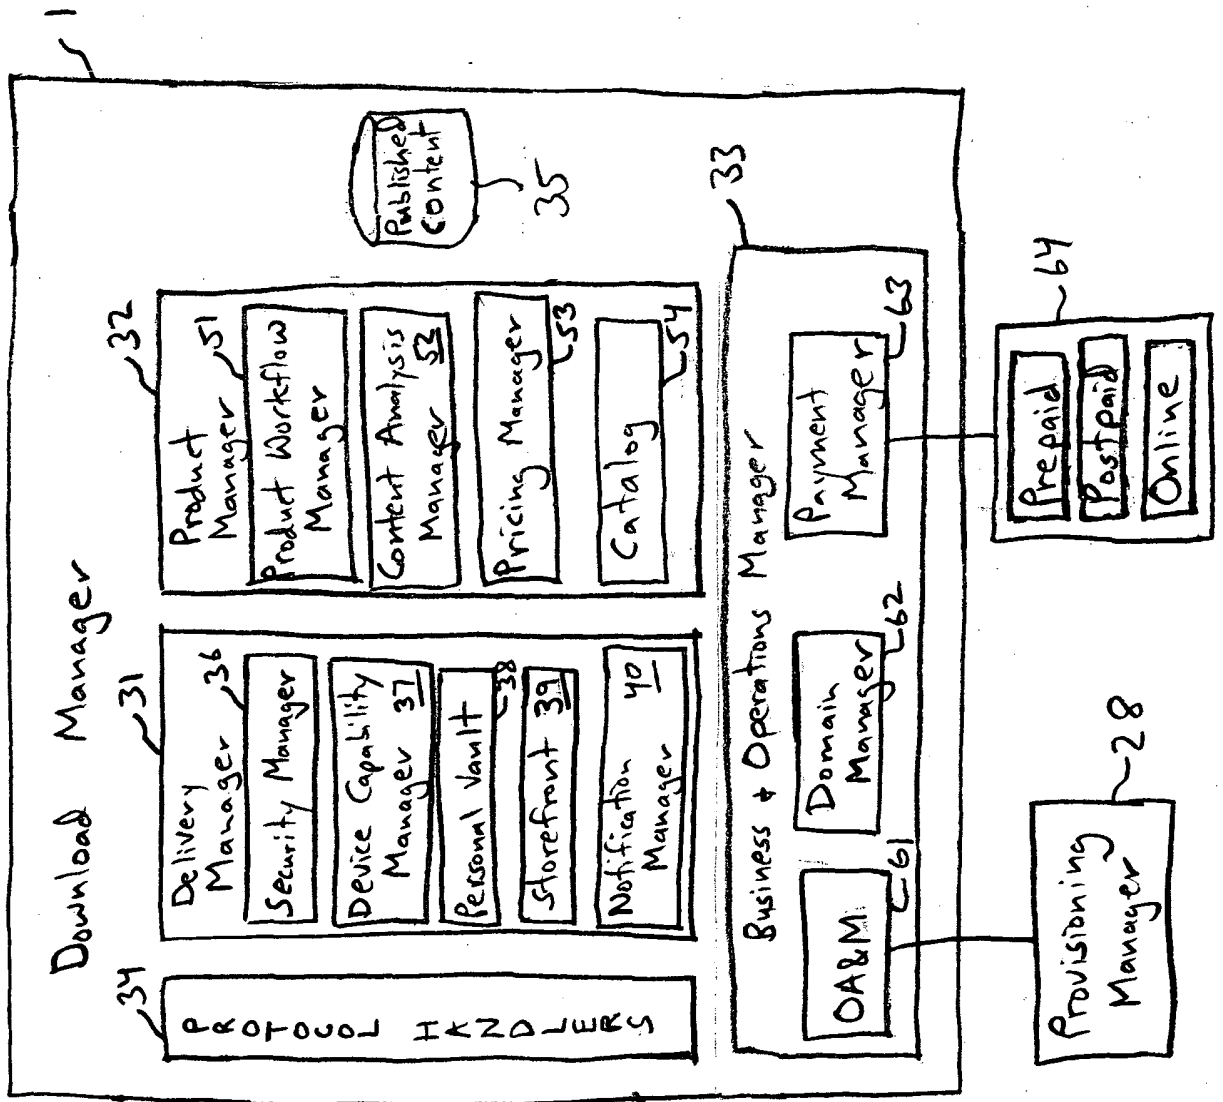 1
Download Manager
34
PROTOCOL HANDLERS
31
Delivery
Manager
36
Security Manager
Device Capability
Manager 37
Personal Vault
38
Storefront 39
Notification 40
Manager
32
Product
Manager
51
Product Workflow
Manager
Content Analysis
Manager 52
Pricing Manager
53
Catalog
54
Published
Content
35
33
Business & Operations Manager
OA&M
61
Domain
Manager
62
Payment
Manager
63
Provisioning
Manager
28
64
Prepaid
Postpaid
Online